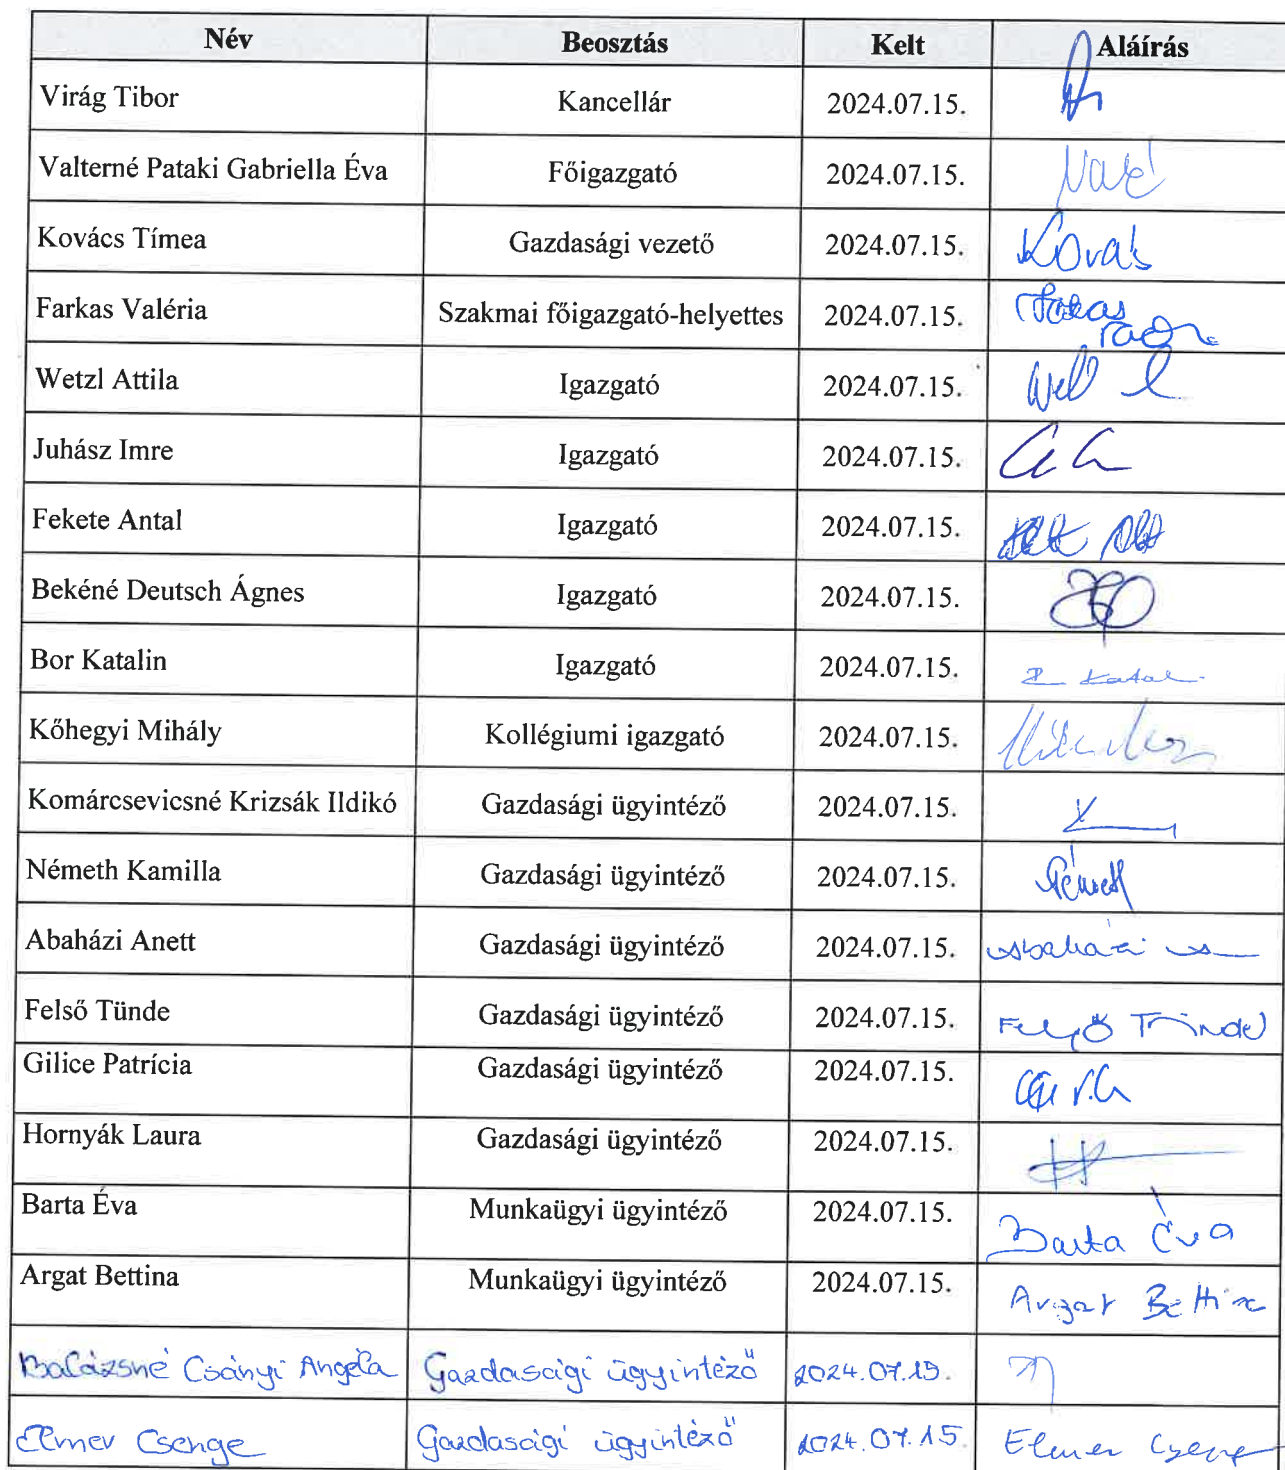 Név Beosztás Kelt Aláírás
Virág Tibor Kancellár 2024.07.15.
Valterné Pataki Gabriella Éva Főigazgató 2024.07.15.
Kovács Tímea Gazdasági vezető 2024.07.15.
Farkas Valéria Szakmai főigazgató-helyettes 2024.07.15.
Wetzl Attila Igazgató 2024.07.15.
Juhász Imre Igazgató 2024.07.15.
Fekete Antal Igazgató 2024.07.15.
Bekéné Deutsch Ágnes Igazgató 2024.07.15.
Bor Katalin Igazgató 2024.07.15.
Kőhegyi Mihály Kollégiumi igazgató 2024.07.15.
Komárcsevicsné Krizsák Ildikó Gazdasági ügyintéző 2024.07.15.
Németh Kamilla Gazdasági ügyintéző 2024.07.15. Németh
Abaházi Anett Gazdasági ügyintéző 2024.07.15. Abaházi
Felső Tünde Gazdasági ügyintéző 2024.07.15. Felső Tünde
Gilice Patrícia Gazdasági ügyintéző 2024.07.15.
Hornyák Laura Gazdasági ügyintéző 2024.07.15.
Barta Éva Munkaügyi ügyintéző 2024.07.15. Barta Éva
Argat Bettina Munkaügyi ügyintéző 2024.07.15. Argat Bettina
Balázsné Csányi Angéla Gazdasági ügyintéző 2024.07.15.
Elmer Csenge Gazdasági ügyintéző 2024.07.15. Elmer Csenge